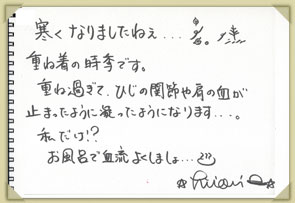 寒くなりましたねぇ...
重ね着の時季です。
重ね過ぎて、ひじの関節や肩の血が
止まったように凝ったようになります...。
私だけ!?
お風呂で血流よくしましょ...